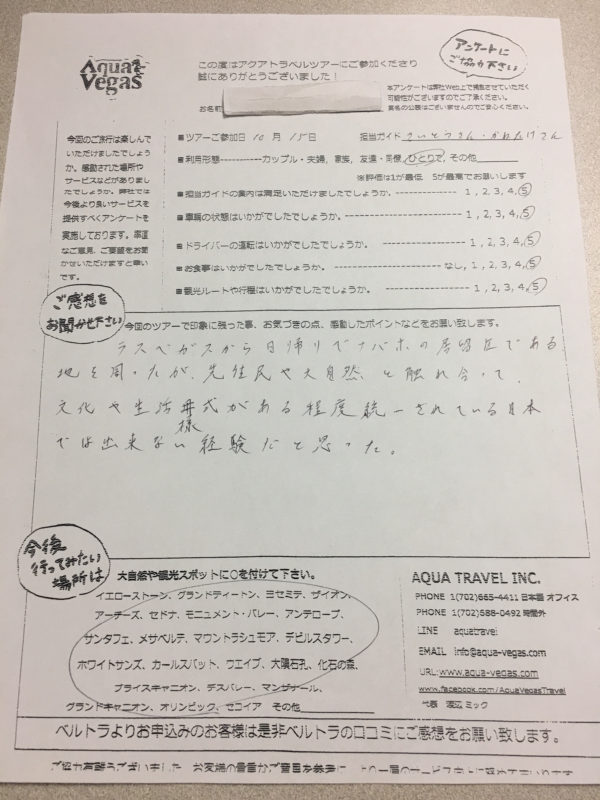 Aqua
Vegas
この度はアクアトラベルツアーにご参加くださり
誠にありがとうございました！
アンケートに
ご協力下さい
本アンケートは弊社Web上で掲載させていただく
可能性がございますのでご了承ください。
実名の公表はございませんのでご安心ください。
お名前
今回のご旅行は楽しんで
いただけましたでしょう
か。感動された場所や
サービスなどがありまし
たでしょうか。弊社では
今後より良いサービスを
提供すべくアンケートを
実施しております。率直
なご意見、ご要望をお聞
かせいただけますと幸い
です。
■ツアーご参加日 10月 15日 担当ガイド さいとうさん・かねたけさん
■利用形態-----------カップル・夫婦、家族、友達・同僚、ひとりで、その他
※評価は1が最低 5が最高でお願いします
■担当ガイドの案内は満足いただけましたでしょうか。---------- 1, 2, 3, 4, 5
■車輛の状態はいかがでしたでしょうか。---------- 1, 2, 3, 4, 5
■ドライバーの運転はいかがでしたでしょうか。---------- 1, 2, 3, 4, 5
■お食事はいかがでしたでしょうか。---------- なし, 1, 2, 3, 4, 5
■観光ルートや行程はいかがでしたでしょうか。---------- 1, 2, 3, 4, 5
ご感想を
お聞かせ下さい
今回のツアーで印象に残った事、お気づきの点、感動したポイントなどをお願い致します。
ラスベガスから日帰りでナバホの居留区である
地を周ったが、先住民や大自然と触れ合って、
文化や生活様式がある程度統一されている日本
では出来ない経験だと思った。
今後
行ってみたい
場所は
大自然や観光スポットに〇を付けて下さい。
イエローストーン、グランドティートン、ヨセミテ、ザイオン、
アーチーズ、セドナ、モニュメント・バレー、アンテロープ、
サンタフェ、メサベルテ、マウントラシュモア、デビルスタワー、
ホワイトサンズ、カールスバット、ウエイブ、大隕石孔、化石の森、
ブライスキャニオン、デスバレー、マンザナール、
グランドキャニオン、オリンピック、セコイア その他
AQUA TRAVEL INC.
PHONE 1(702)665-4411 日本語 オフィス
PHONE 1(702)588-0492 時間外
LINE aquatravel
EMAIL info@aqua-vegas.com
URL:www.aqua-vegas.com
www.facebook.com/AquaVegasTravel
代表 渡辺 ミック
ベルトラよりお申込みのお客様は是非ベルトラの口コミにご感想をお願い致します。